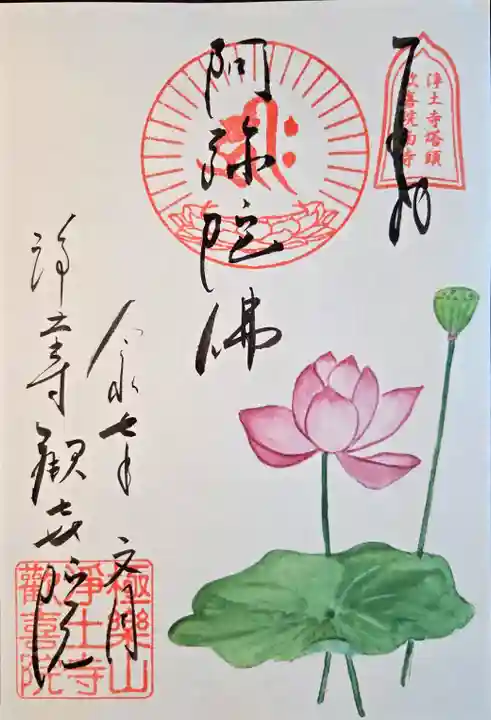 浄土寺塔頭
歓喜院南寺
奉拝
阿弥陀佛
令和七年 文月
浄土寺 歓喜院
極樂山
淨土寺
歡喜院